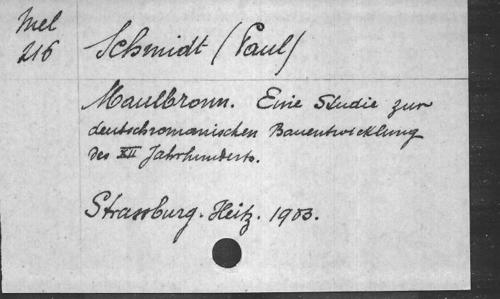 Mel
216
Schmidt (Paul)
Maulbronn. Eine Studie zur
deutschromanischen Bauentwicklung
des XII Jahrhunderts.
Strassburg. Heitz. 1903.